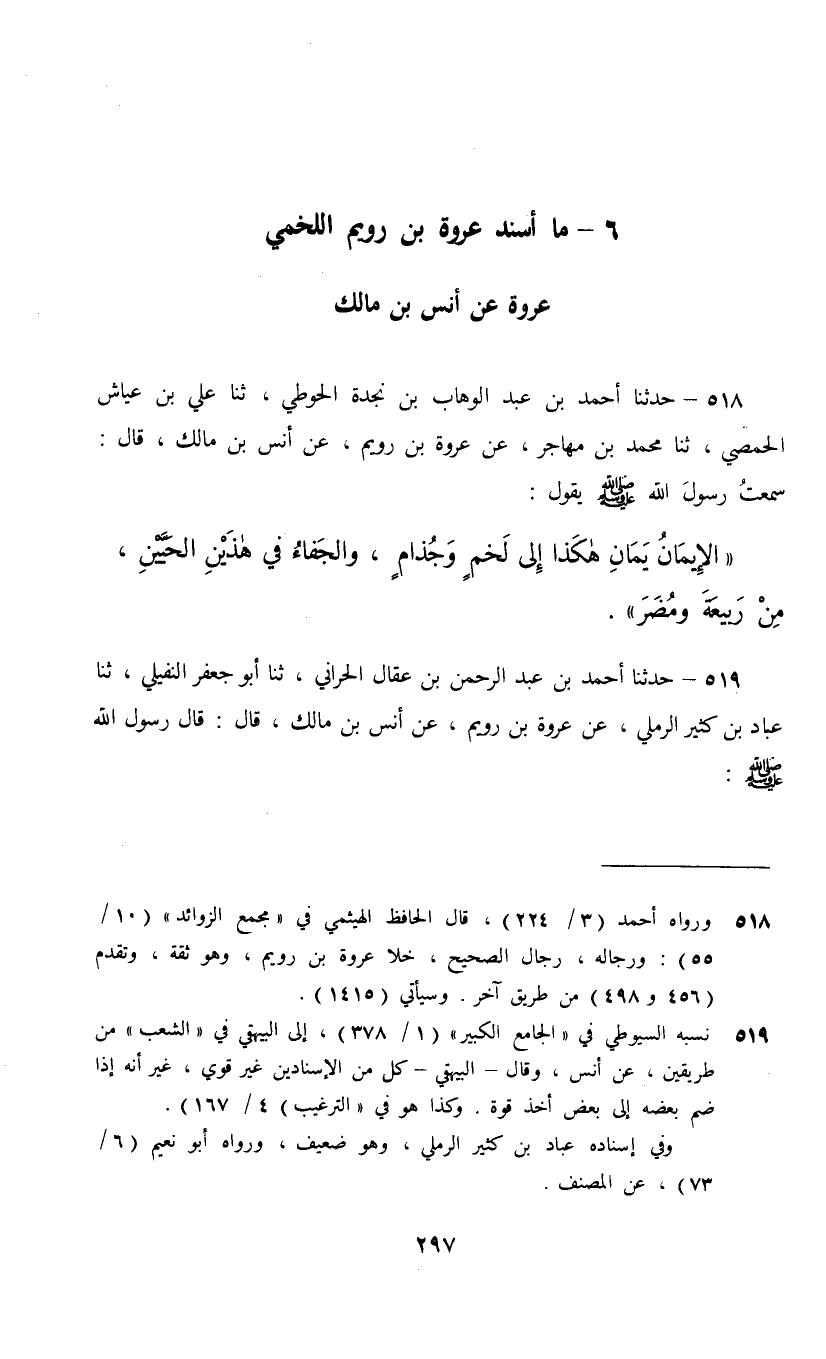 ٦ – ما أسند عروة بن رويم اللخمي
عروة عن أنس بن مالك
٥١٨ – حدثنا أحمد بن عبد الوهاب بن نجدة الحوطي ، ثنا علي بن عياش
الحمصي ، ثنا محمد بن مهاجر ، عن عروة بن رويم ، عن أنس بن مالك ، قال :
سمعتُ رسولَ الله ﷺ يقول :
« الإِيمَانُ يَمَانِ هٰكَذا إِلى لَخمٍ وَجُذامٍ ، والجَفاءُ في هٰذَيْنِ الحَيَّيْنِ ،
مِنْ رَبِيعَةَ ومُضَرَ» .
٥١٩ – حدثنا أحمد بن عبد الرحمن بن عقال الحراني ، ثنا أبو جعفر النفيلي ، ثنا
عباد بن كثير الرملي ، عن عروة بن رويم ، عن أنس بن مالك ، قال : قال رسول الله
ﷺ :
٥١٨ ورواه أحمد (٣/ ٢٢٤) ، قال الحافظ الهيثمي في « مجمع الزوائد» (١٠/
٥٥) : ورجاله ، رجال الصحيح ، خلا عروة بن رويم ، وهو ثقة ، وتقدم
(٤٥٦ و ٤٩٨) من طريق آخر . وسيأتي (١٤١٥) .
٥١٩ نسبه السيوطي في « الجامع الكبير» (١/ ٣٧٨) ، إلى البيهقي في « الشعب» من
طريقين ، عن أنس ، وقال – البيهقي – كل من الإسنادين غير قوي ، غير أنه إذا
ضم بعضه إلى بعض أخذ قوة . وكذا هو في « الترغيب) ٤ / ١٦٧) .
وفي إسناده عباد بن كثير الرملي ، وهو ضعيف ، ورواه أبو نعيم (٦/
٧٣) ، عن المصنف .
٢٩٧